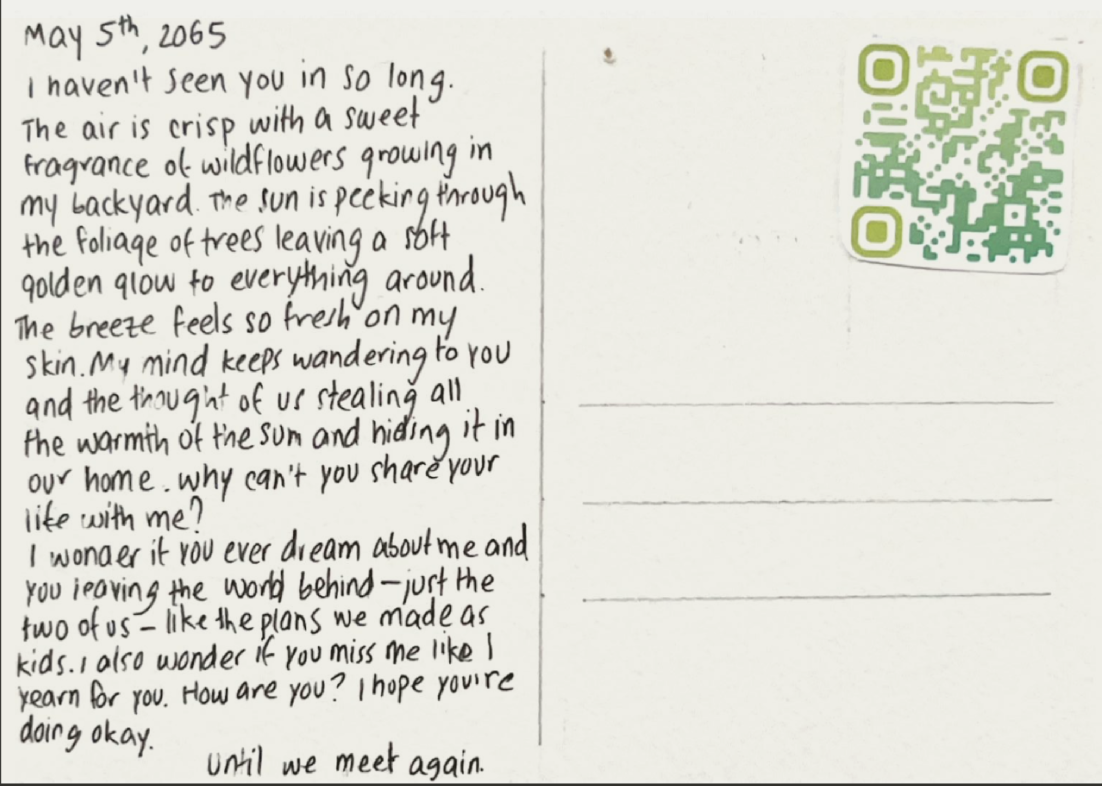 May 5th, 2065
I haven't seen you in so long.
The air is crisp with a sweet
fragrance of wildflowers growing in
my backyard. The sun is peeking through
the foliage of trees leaving a soft
golden glow to everything around.
The breeze feels so fresh on my
skin. My mind keeps wandering to you
and the thought of us stealing all
the warmth of the sun and hiding it in
our home. Why can't you share your
life with me?
I wonder if you ever dream about me and
you leaving the world behind – just the
two of us – like the plans we made as
kids. I also wonder if you miss me like I
yearn for you. How are you? I hope you're
doing okay.
Until we meet again.